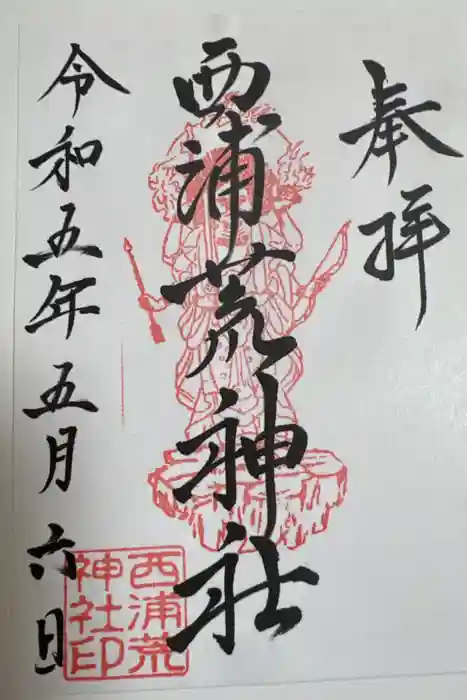 奉拝
西浦荒神社
令和五年五月六日
西浦荒
神社印